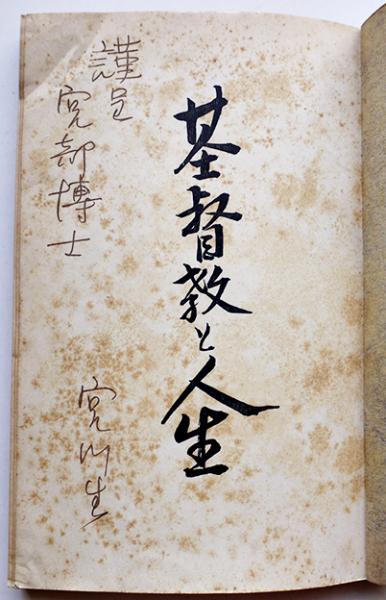 基督教と人生
謹呈
宮部博士
宮川生